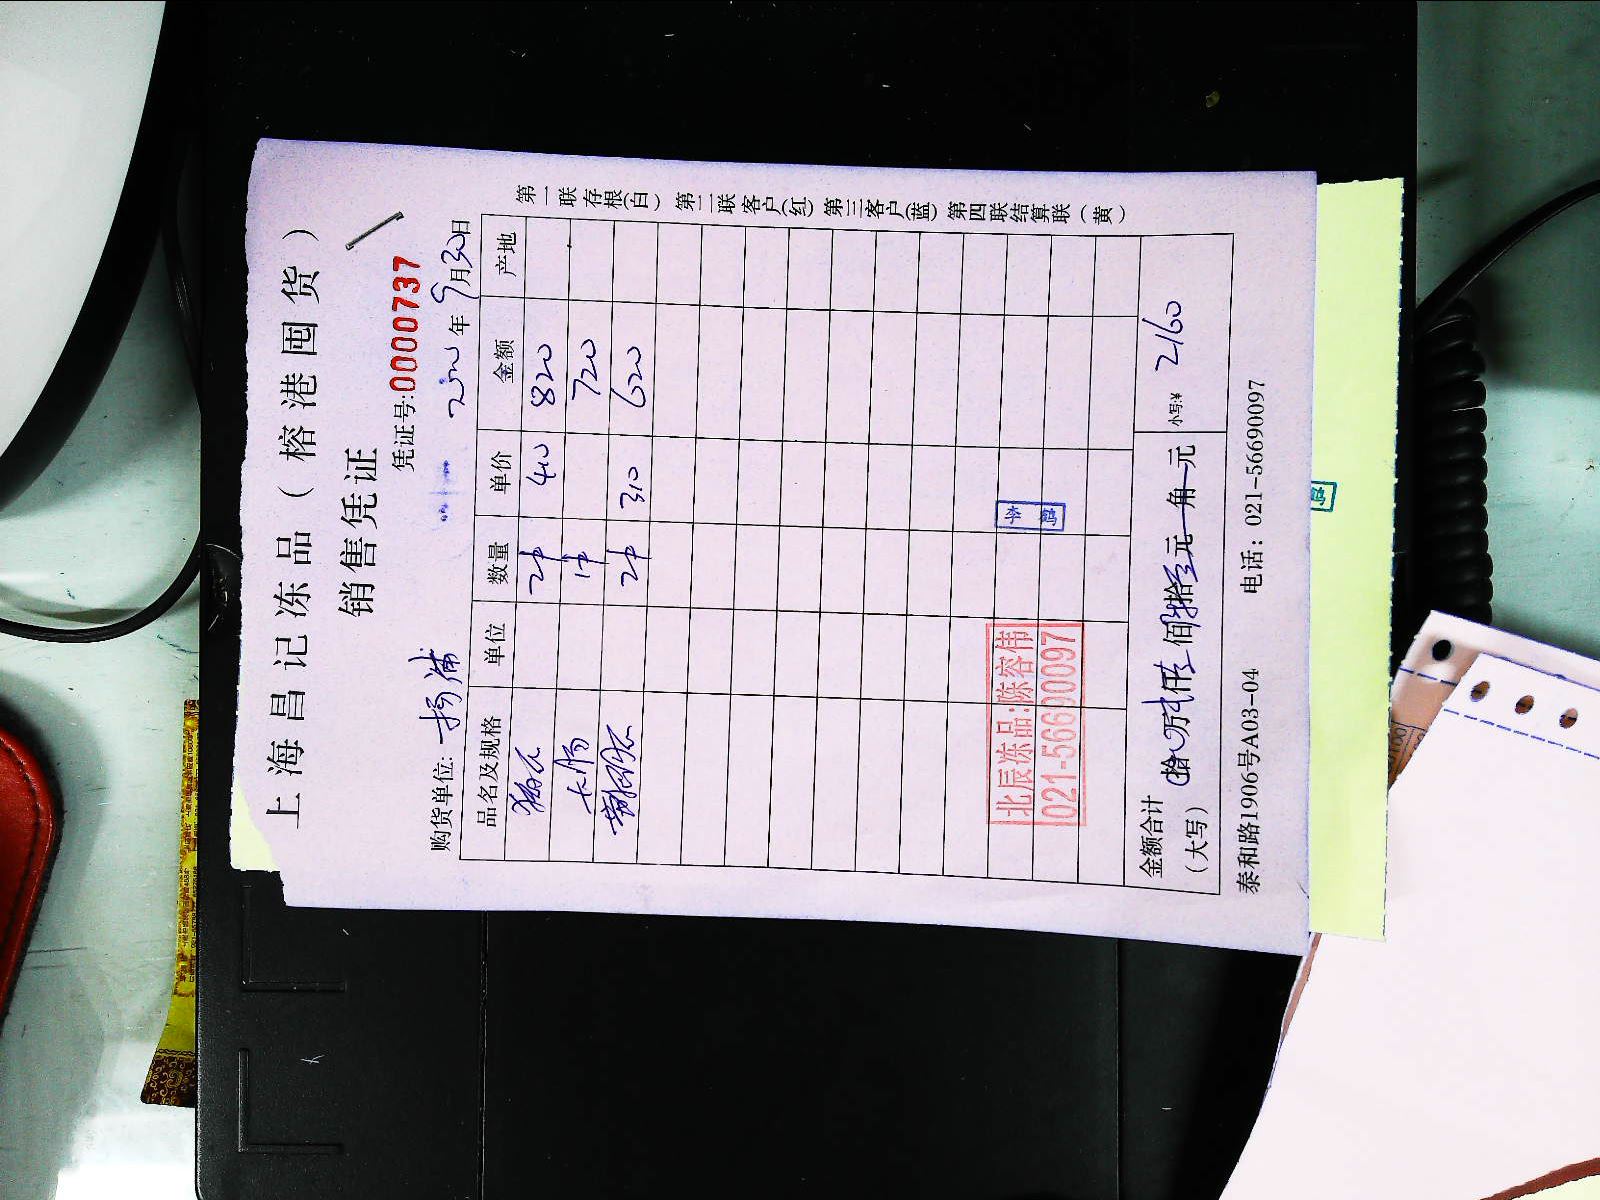 上海昌记冻品（榕港囤货）
销售凭证
凭证号:0000737
购货单位: 杨浦 年9月30日
品名及规格 单位 数量 单价 金额 产地
2件 410 820
大肠 1件 720
2件 310 620
金额合计（大写） 拾万仟佰拾元角元 小写:¥ 2160
泰和路1906号A03-04 电话：021-56690097
第一联存根(白) 第二联客户(红) 第三客户(蓝) 第四联结算联(黄)
北辰冻品:陈容伟
021-56690097
李鹤
鹤